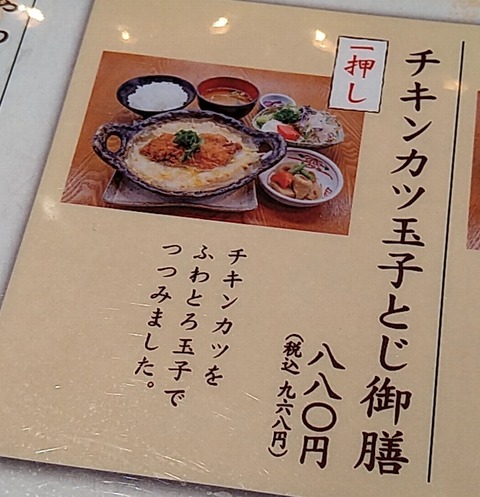 チキンカツ玉子とじ御膳
一押し
八八〇円
(税込 九六八円)
チキンカツを
ふわとろ玉子で
つつみました。